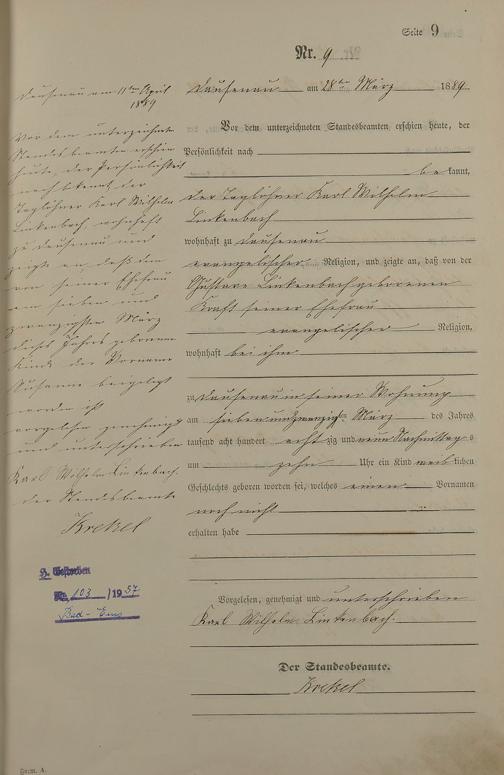 Seite 9
Nr. 9
Dausenau am 28ten März 1889
Vor dem unterzeichneten Standesbeamten erschien heute, der
Persönlichkeit nach
be kannt,
der Taglöhner Karl Wilhelm
Linkenbach
wohnhaft zu Dausenau
evangelischer Religion, und zeigte an, daß von der
Linkenbach geborenen
Kraft seiner Ehefrau
evangelischer Religion,
wohnhaft bei ihm
zu Dausenau in seiner Wohnung
am siebenundzwanzigsten März des Jahres
tausend acht hundert achtzig und neun Nachmittags
um zehn Uhr ein Kind weiblichen
Geschlechts geboren worden sei, welches einen Vornamen
noch nicht
erhalten habe
Vorgelesen, genehmigt und unterschrieben
Karl Wilhelm Linkenbach.
Der Standesbeamte.
Krekel
Dausenau am 11ten April
1889
Vor dem unterzeichneten
Standesbeamten erschien
heute, der Persönlichkeit
nach bekannt der
Taglöhner Karl Wilhelm
Linkenbach wohnhaft
zu Dausenau und
zeigte an daß dem
von seiner Ehefrau
am sieben und
zwanzigsten März
dieses Jahres geborenen
Kinde der Vorname
Susanna beigelegt
worden ist
vorgelesen genehmigt
und unterschrieben
Karl Wilhelm Linkenbach.
der Standesbeamte
Krekel
Gestorben
Nr. 103 / 1957
Bad-Ems
Form. A.